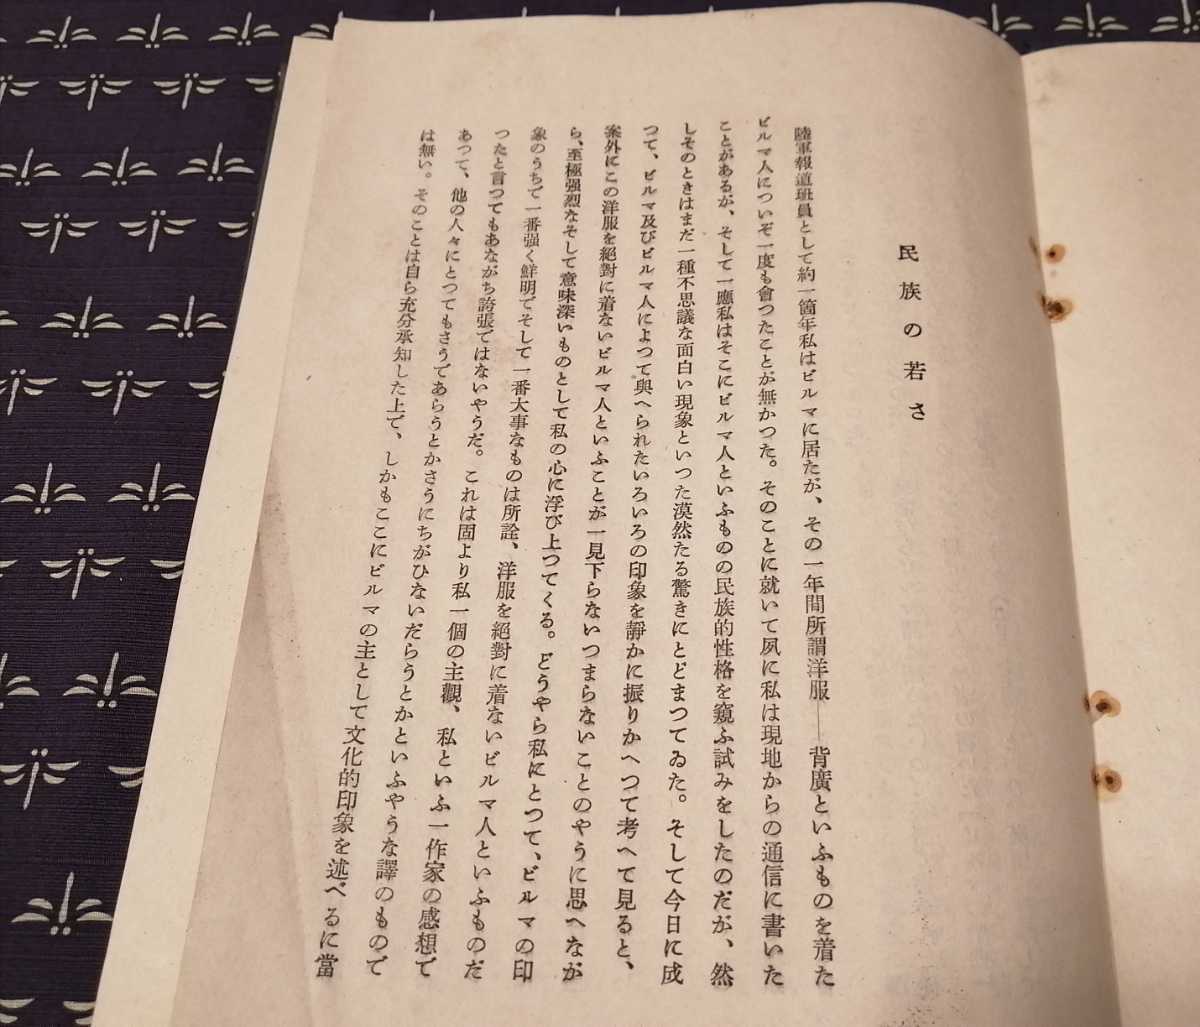 民族の若さ
陸軍報道班員として約一箇年私はビルマに居たが、その一年間所謂洋服――背廣といふものを着た
ビルマ人についぞ一度も會つたことが無かつた。そのことに就いて夙に私は現地からの通信に書いた
ことがあるが、そして一應私はそこにビルマ人といふものの民族的性格を窺ふ試みをしたのだが、然
しそのときはまだ一種不思議な面白い現象といつた漠然たる驚きにとどまつてゐた。そして今日に成
つて、ビルマ及びビルマ人によつて與へられたいろいろの印象を靜かに振りかへつて考へて見ると、
案外にこの洋服を絕對に着ないビルマ人といふことが一見下らないつまらないことのやうに思へなが
ら、至極强烈なそして意味深いものとして私の心に浮び上つてくる。どうやら私にとつて、ビルマの印
象のうちで一番强く鮮明でそして一番大事なものは所詮、洋服を絕對に着ないビルマ人といふものだ
つたと言つてもあながち誇張ではないやうだ。これは固より私一個の主觀、私といふ一作家の感想で
あつて、他の人々にとつてもさうであらうとかさうにちがひないだらうとかといふやうな譯のもので
は無い。そのことは自ら充分承知した上で、しかもここにビルマの主として文化的印象を述べるに當